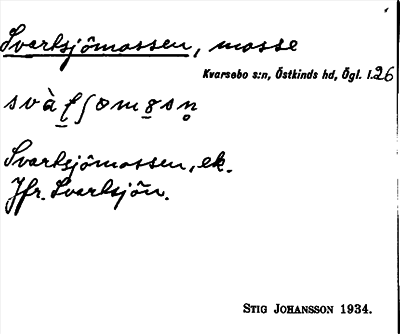 Svartsjömossen, mosse
Kvarsebo s:n, Östkinds hd, Ögl. l.26
Svartsjömossen, ek.
Jfr. Svartsjön.
STIG JOHANSSON 1934.